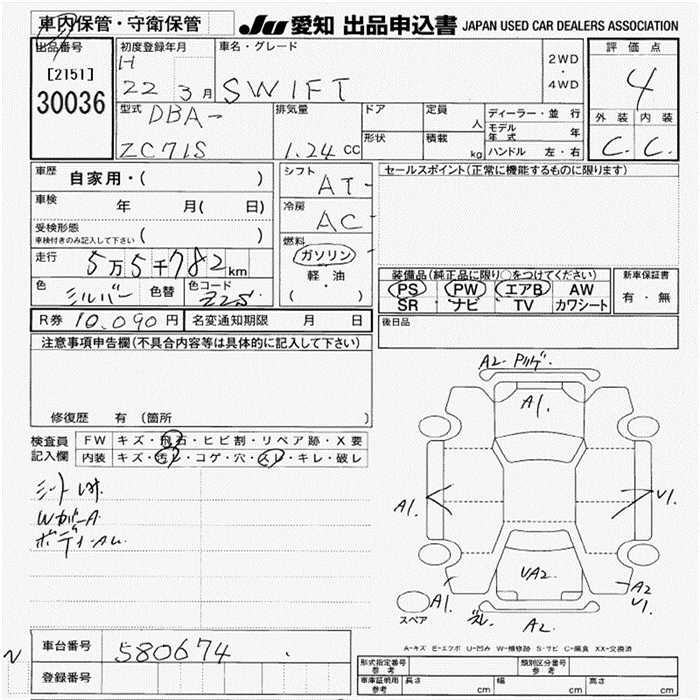 車内保管・守衛保管
JU 愛知 出品申込書 JAPAN USED CAR DEALERS ASSOCIATION
出品番号
[2151]
30036
初度登録年月
H
22 3月
車名・グレード
SWIFT
2WD
・
4WD
評価点
4
外装 内装
C. C.
型式
DBA-
ZC71S
排気量
1.24 cc
ドア
形状
定員
人
積載
kg
ディーラー・並 行
モデル年式 年
ハンドル 左・右
車歴 自家用・( )
車検 年 月( 日)
受検形態
車検付きのみ記入して下さい ( )
走行 5万5千782km
色 シルバー 色替 色コード Z2S
シフト
AT-
冷房
AC
燃料
ガソリン
軽・油
( ・ )
セールスポイント(正常に機能するものに限ります)
装備品(純正品に限り○をつけてください)
PS PW エアB AW
SR ナビ TV カワシート
新車保証書
有・無
R券 10,090円 名変通知期限 月 日
後日品
注意事項申告欄(不具合内容等は具体的に記入して下さい)
修復歴 有 (箇所 )
検査員記入欄
FW キズ・飛石・ヒビ割・リペア跡・X要
内装 キズ・汚レ・コゲ・穴・スレ・キレ・破レ
A2
A1.
A1.
V1.
UA2
A1.
A2
V1.
A2.
スペア
A-キズ E-エクボ U-凹み W-補修跡 S-サビ C-腐食 XX-交換済
N
車台番号 580674
登録番号
形式指定番号
参考
類別区分番号
参考
車庫証明用
参考
長さ cm 幅 cm 高さ cm